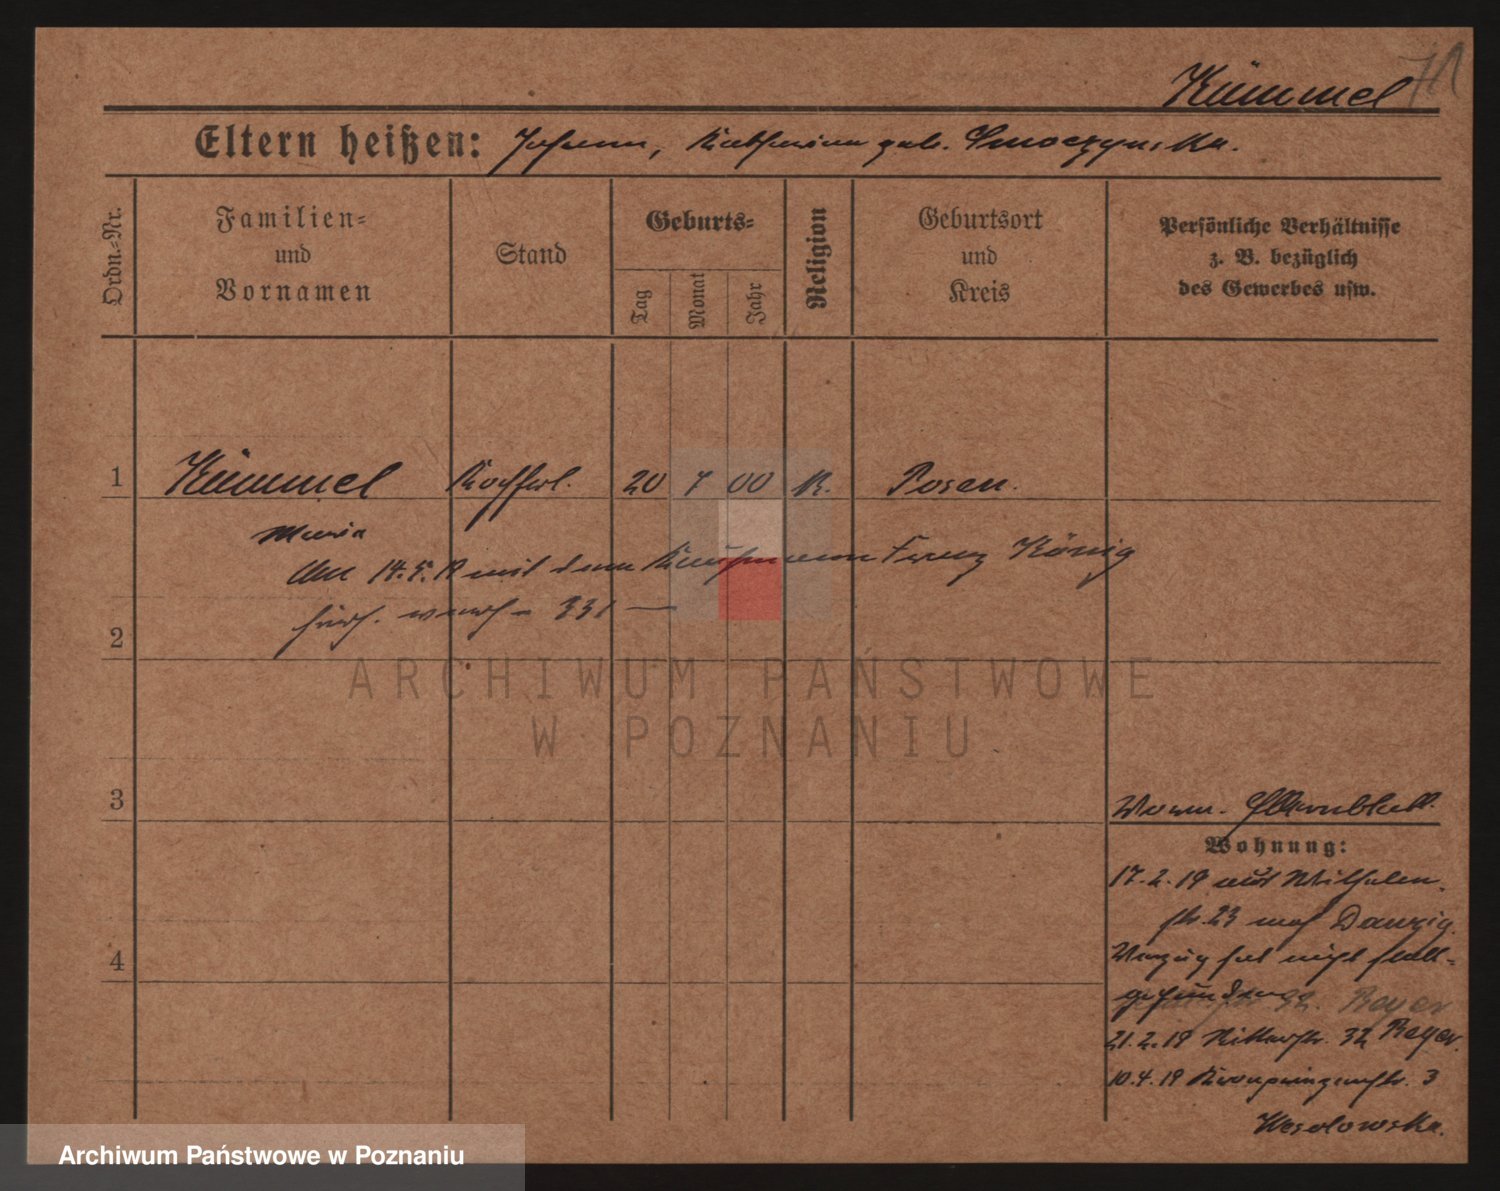 Kümmel
71
Eltern heißen: Johann, Katharina geb. Smoczynska.
Ordn.-Nr.
Familien-
und
Vornamen
Stand
Geburts-
Tag
Monat
Jahr
Religion
Geburtsort
und
Kreis
Persönliche Verhältnisse
z. B. bezüglich
des Gewerbes usw.
1
Kümmel
20 7 00 K. Posen.
Maria
Am 14.5.19 mit dem Kaufmann Franz König
331 —
2
ARCHIWUM PAŃSTWOWE
W POZNANIU
3
4
Wohnung:
17.2.19 aus Wilhelm-
str. 23 nach Danzig.
Verzug hat nicht statt-
gefunden
32. Beyer
21.2.19 Ritterstr. 32 Beyer.
10.4.19 Kronprinzenstr. 3
Wesolowska.
Archiwum Państwowe w Poznaniu